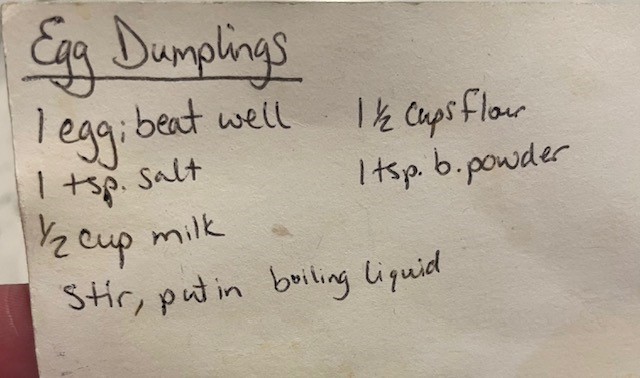 Egg Dumplings
1 egg; beat well
1 tsp. salt
1/2 cup milk
1 1/2 cups flour
1 tsp. b. powder
Stir, put in boiling liquid